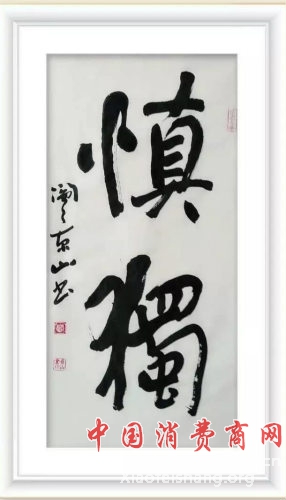 慎獨
东山书
中国消费商网
xiaofeishang.org